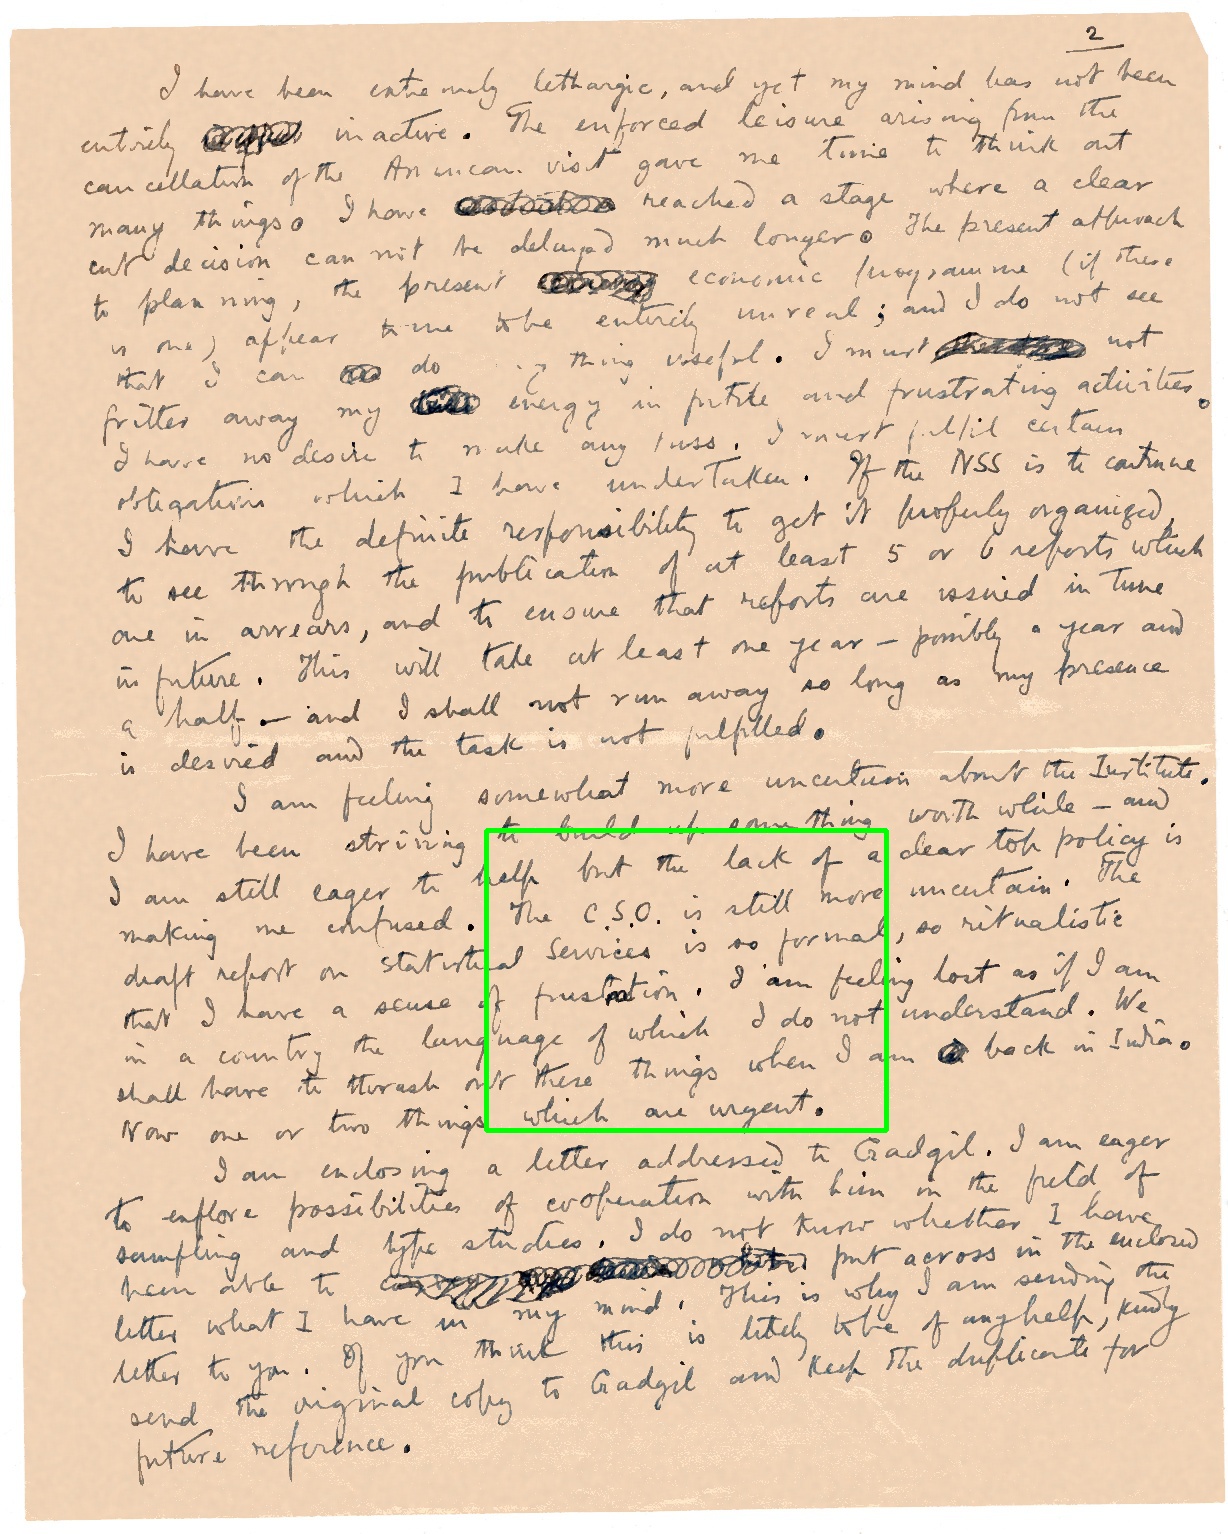 2
I have been extremely lethargic, and yet my mind has not been
entirely inactive. The enforced leisure arising from the
cancellation of the American visit gave me time to think out
many things. I have reached a stage where a clear
cut decision can not be delayed much longer. The present approach
to planning, the present economic programme (if there
is one) appear to me to be entirely unreal; and I do not see
that I can do thing useful. I must not
fritter away my energy in futile and frustrating activities.
I have no desire to make any fuss. I must fulfil certain
obligations which I have undertaken. If the NSS is to continue
I have the definite responsibility to get it properly organized,
to see through the publication of at least 5 or 6 reports which
are in arrears, and to ensure that reports are issued in time
in future. This will take at least one year – possibly a year and
a half – and I shall not run away so long as my presence
is desired and the task is not fulfilled.
I am feeling somewhat more uncertain about the Institute.
I have been striving to build up something worth while – and
I am still eager to help but the lack of a clear top policy is
making me confused. The C.S.O. is still more uncertain. The
draft report on statistical services is so formal, so ritualistic
that I have a sense of frustation. I am feeling lost as if I am
in a country the language of which I do not understand. We
shall have to thrash out these things when I am back in India.
Now one or two things which are urgent.
I am enclosing a letter addressed to Gadgil. I am eager
to explore possibilities of cooperation with him in the field of
sampling and type studies. I do not know whether I have
been able to put across in the enclosed
letter what I have in my mind. This is why I am sending the
letter to you. If you think this is likely to be of any help, kindly
send the original copy to Gadgil and keep the duplicate for
future reference.